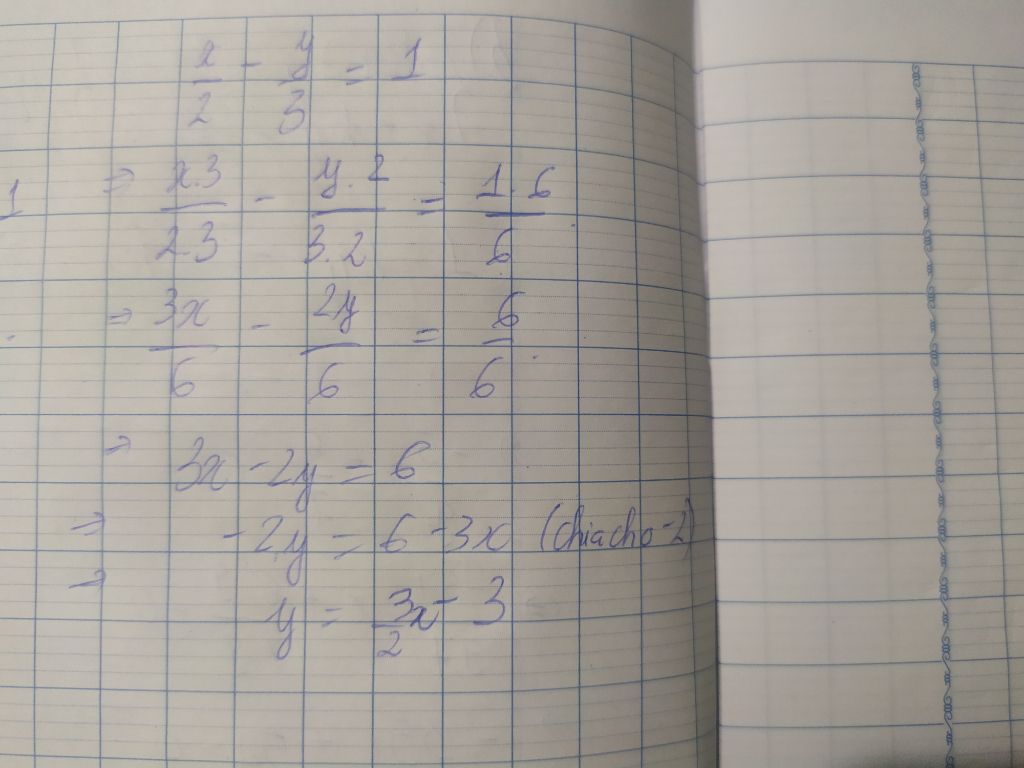 x/2 - y/3 = 1
1 ⇒ x.3/2.3 - y.2/3.2 = 1.6/6
⇒ 3x/6 - 2y/6 = 6/6
⇒ 3x - 2y = 6
⇒ -2y = 6 - 3x (chia cho -2)
⇒ y = 3/2 x - 3